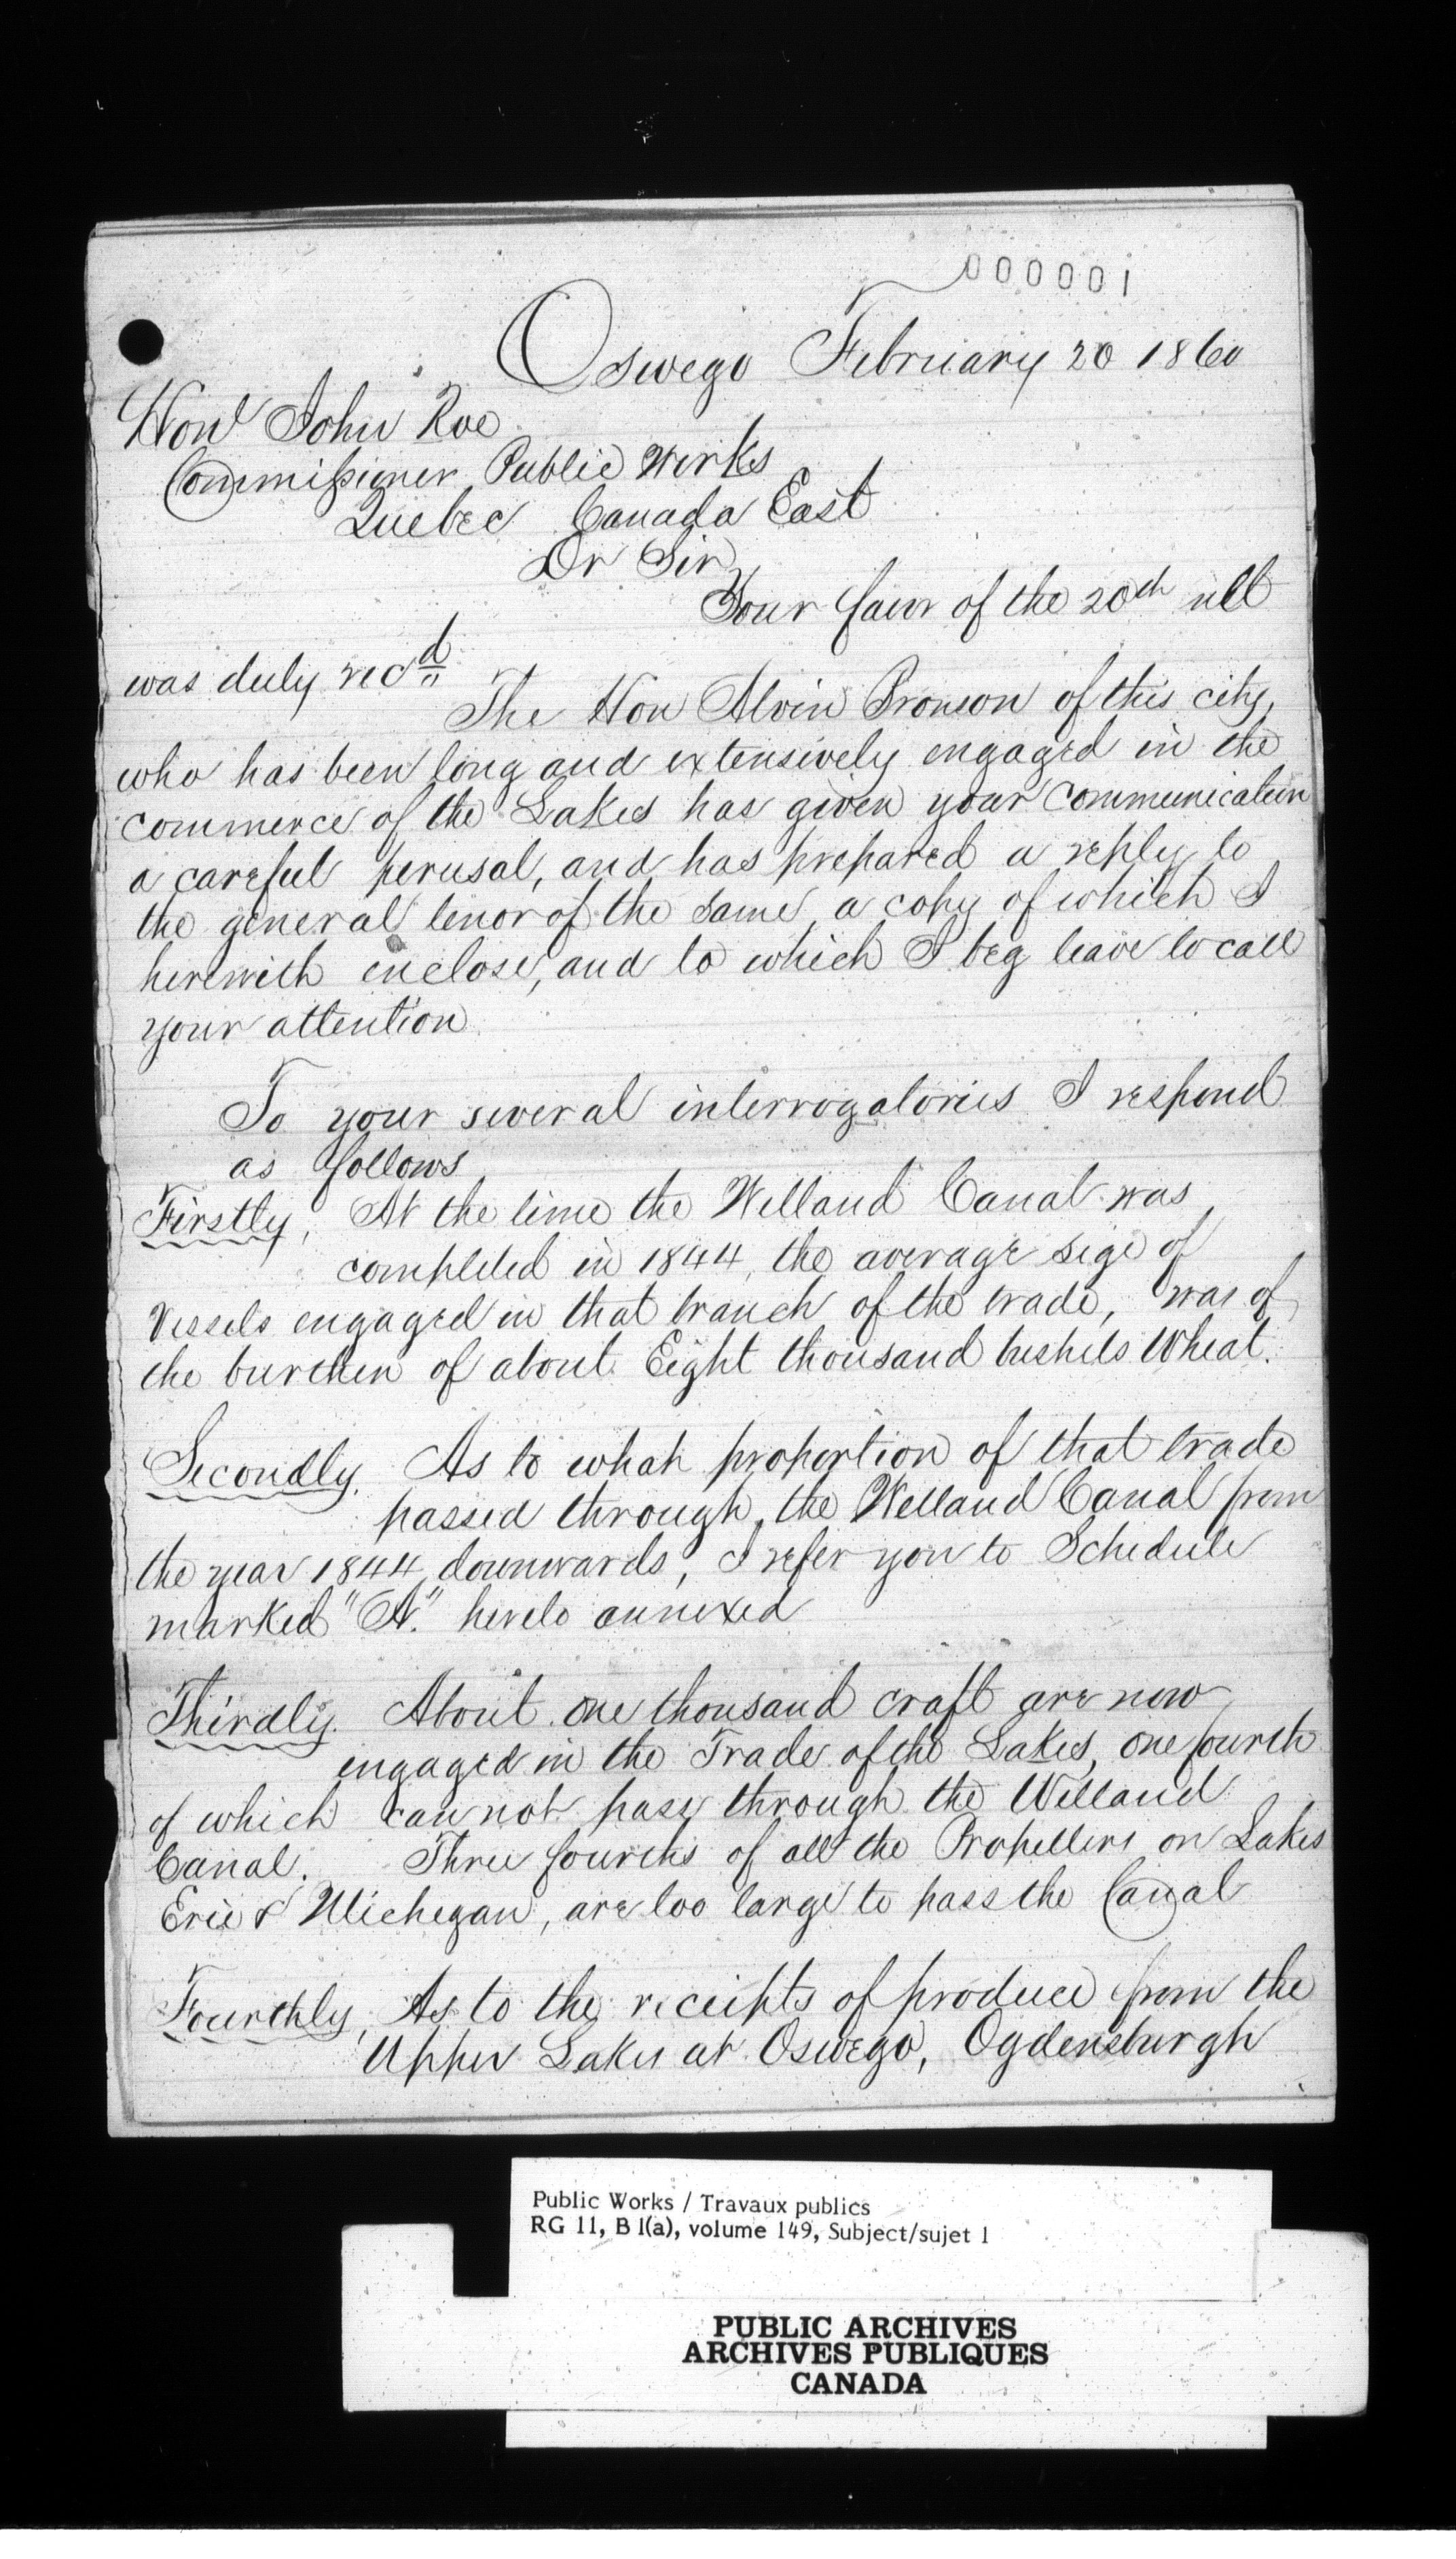 000001
Oswego February 20 1860
Honl John Roe
Commissioner Public Works
Quebec Canada East
Dr Sir,
Your favor of the 20th ult
was duly recd
The Hon Alvin Bronson of this city,
who has been long and extensively engaged in the
commerce of the Lakes has given your communication
a careful perusal, and has prepared a reply to
the general tenor of the same, a copy of which I
herewith enclose, and to which I beg leave to call
your attention
To your several interrogatories I respond
as follows
Firstly, At the time the Welland Canal was
completed in 1844, the average size of
Vessels engaged in that branch of the trade, was of
the burthen of about Eight thousand bushels Wheat.
Secondly. As to what proportion of that trade
passed through, the Welland Canal from
the year 1844 downwards, I refer you to Schedule
marked "A." hereto annexed
Thirdly. About one thousand craft are now
engaged in the Trade of the Lakes, one fourth
of which can not pass through the Welland
Canal. Three fourths of all the Propellers on Lakes
Erie & Michegan, are too large to pass the Canal
Fourthly, As to the receipts of produce from the
Upper Lakes at Oswego, Ogdensburgh
Public Works / Travaux publics
RG 11, B 1(a), volume 149, Subject/sujet 1
PUBLIC ARCHIVES
ARCHIVES PUBLIQUES
CANADA